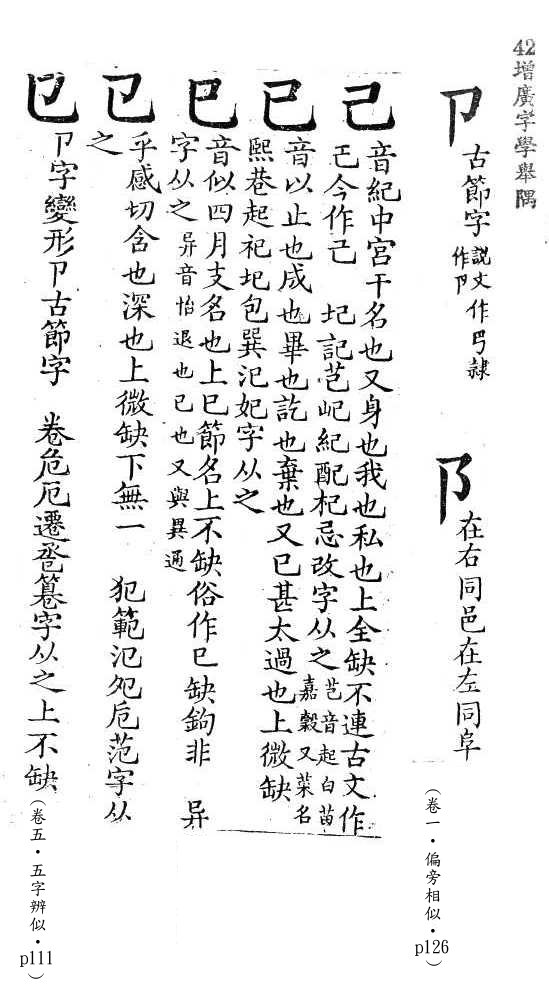 42增廣字學舉隅
卩 古節字 說文作㔾隸作卩
阝 在右同邑在左同阜
(卷一・偏旁相似・p126)
己 音紀中宮干名也又身也我也私也上全缺不連古文作
今作己 圮記芑屺紀配杞忌改字从之 芑音起白苗嘉穀又菜名
已 音以止也成也畢也訖也棄也又已甚太過也上微缺
熙巷起祀圯包巽汜妃字从之
巳 音似四月支名也上巳節名上不缺俗作巳缺鉤非 异
字从之 异音怡退也已也又與異通
㔾 乎感切含也深也上微缺下無一 犯範氾夗卮范字从
之
㔾 卩字變形卩古節字 卷危厄遷卺䇔字从之上不缺
(卷五・五字辨似・p111)